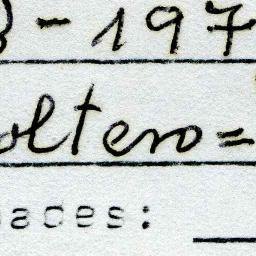 8-197
oltero=
ades: